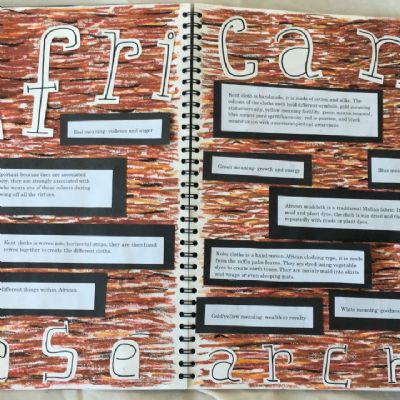 African
Kent cloth is handmade, it is made of cotton and silks. The
colours of the cloths each hold different symbols, gold meaning
status/serenity, yellow meaning fertility, green means renewal,
blue means pure spirit/harmony, red is passion, and black
means union with ancestors/spiritual awareness.
Red meaning- violence and anger
Green meaning- growth and energy
Blue
important because they are associated
they are strongly associated with
who wears one of these colours during
wing off all the virtues.
African mudcloth is a traditional Malian fabric,
mud and plant dyes, the cloth is sun dried and
repeatedly with muds or plant dyes.
Kent cloths is woven into horizontal strips, they are then hand
sewed together to create the different cloths.
Kuba cloths is a hand woven African clothing type, it is made
from the raffia palm leaves. They are dyed using vegetable
dyes to create earth tones. They are mainly maid into skirts
and wraps or even sleeping mats.
different things within African
Gold/yellow meaning- wealth or royalty
White meaning- goodness
esearch